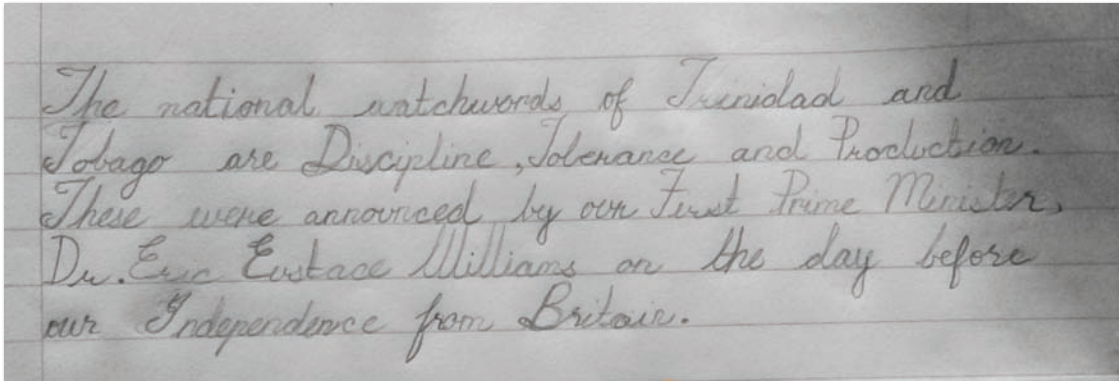 The national watchwords of Trinidad and
Tobago are Discipline, Tolerance and Production.
These were announced by our First Prime Minister,
Dr. Eric Eustace Williams on the day before
our Independence from Britain.